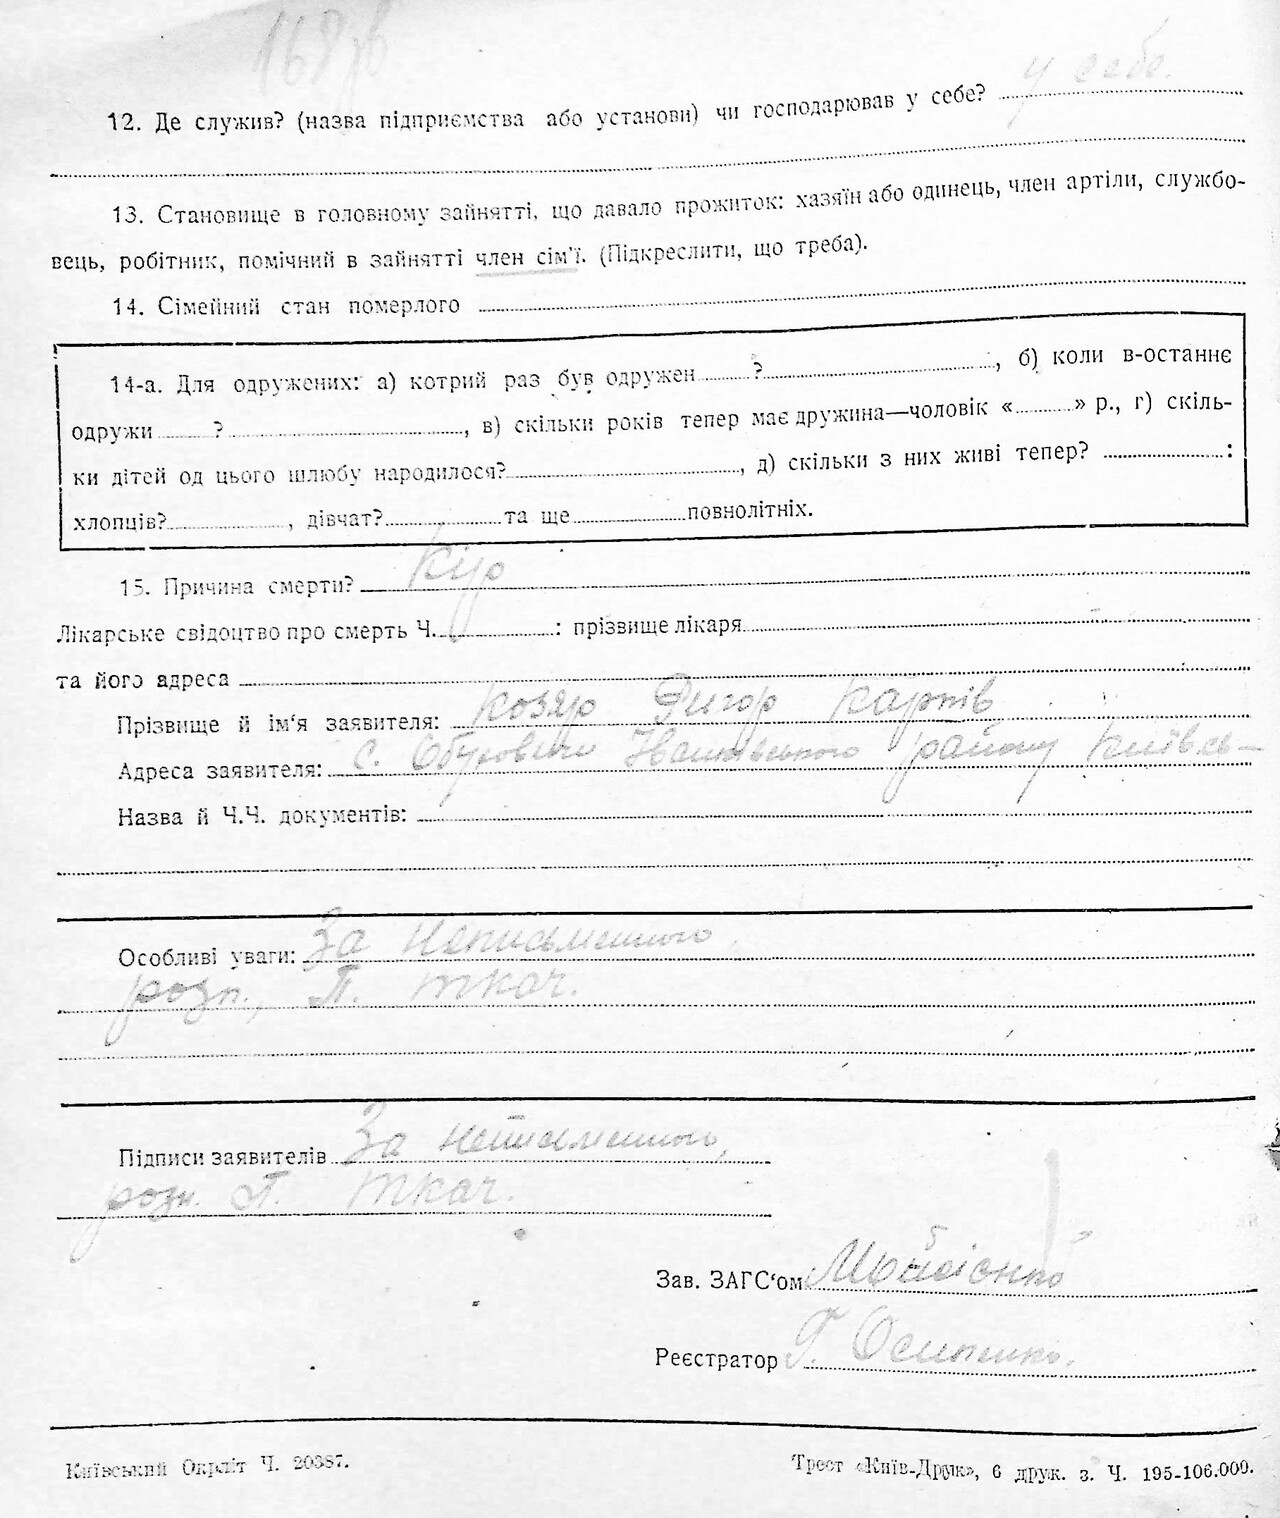 168 зв
12. Де служив? (назва підприємства або установи) чи господарював у себе? у себе.
13. Становище в головному зайнятті, що давало прожиток: хазяїн або одинець, член артіли, службо-
вець, робітник, помічний в зайнятті член сім'ї. (Підкреслити, що треба).
14. Сімейний стан померлого
14-а. Для одружених: а) котрий раз був одружен ? , б) коли в-останнє
одружи ? , в) скільки років тепер має дружина—чоловік « » р., г) скіль-
ки дітей од цього шлюбу народилося? , д) скільки з них живі тепер? :
хлопців? , дівчат? та ще повнолітніх.
15. Причина смерти? Кір
Лікарське свідоцтво про смерть Ч. : прізвище лікаря
та його адреса
Прізвище й ім'я заявителя: Козяр Григор Карпів
Адреса заявителя: с. району Київсь-
Назва й Ч.Ч. документів:
Особливі уваги: За неписьменного
розп., П. Ткач.
Підписи заявителів За неписьменного,
розп. П. Ткач.
Зав. ЗАГС'ом
Реєстратор Г. Осипенко.
Київський Окрліт Ч. 20387.
Трест «Київ-Друк», 6 друк. з. Ч. 195-106.000.